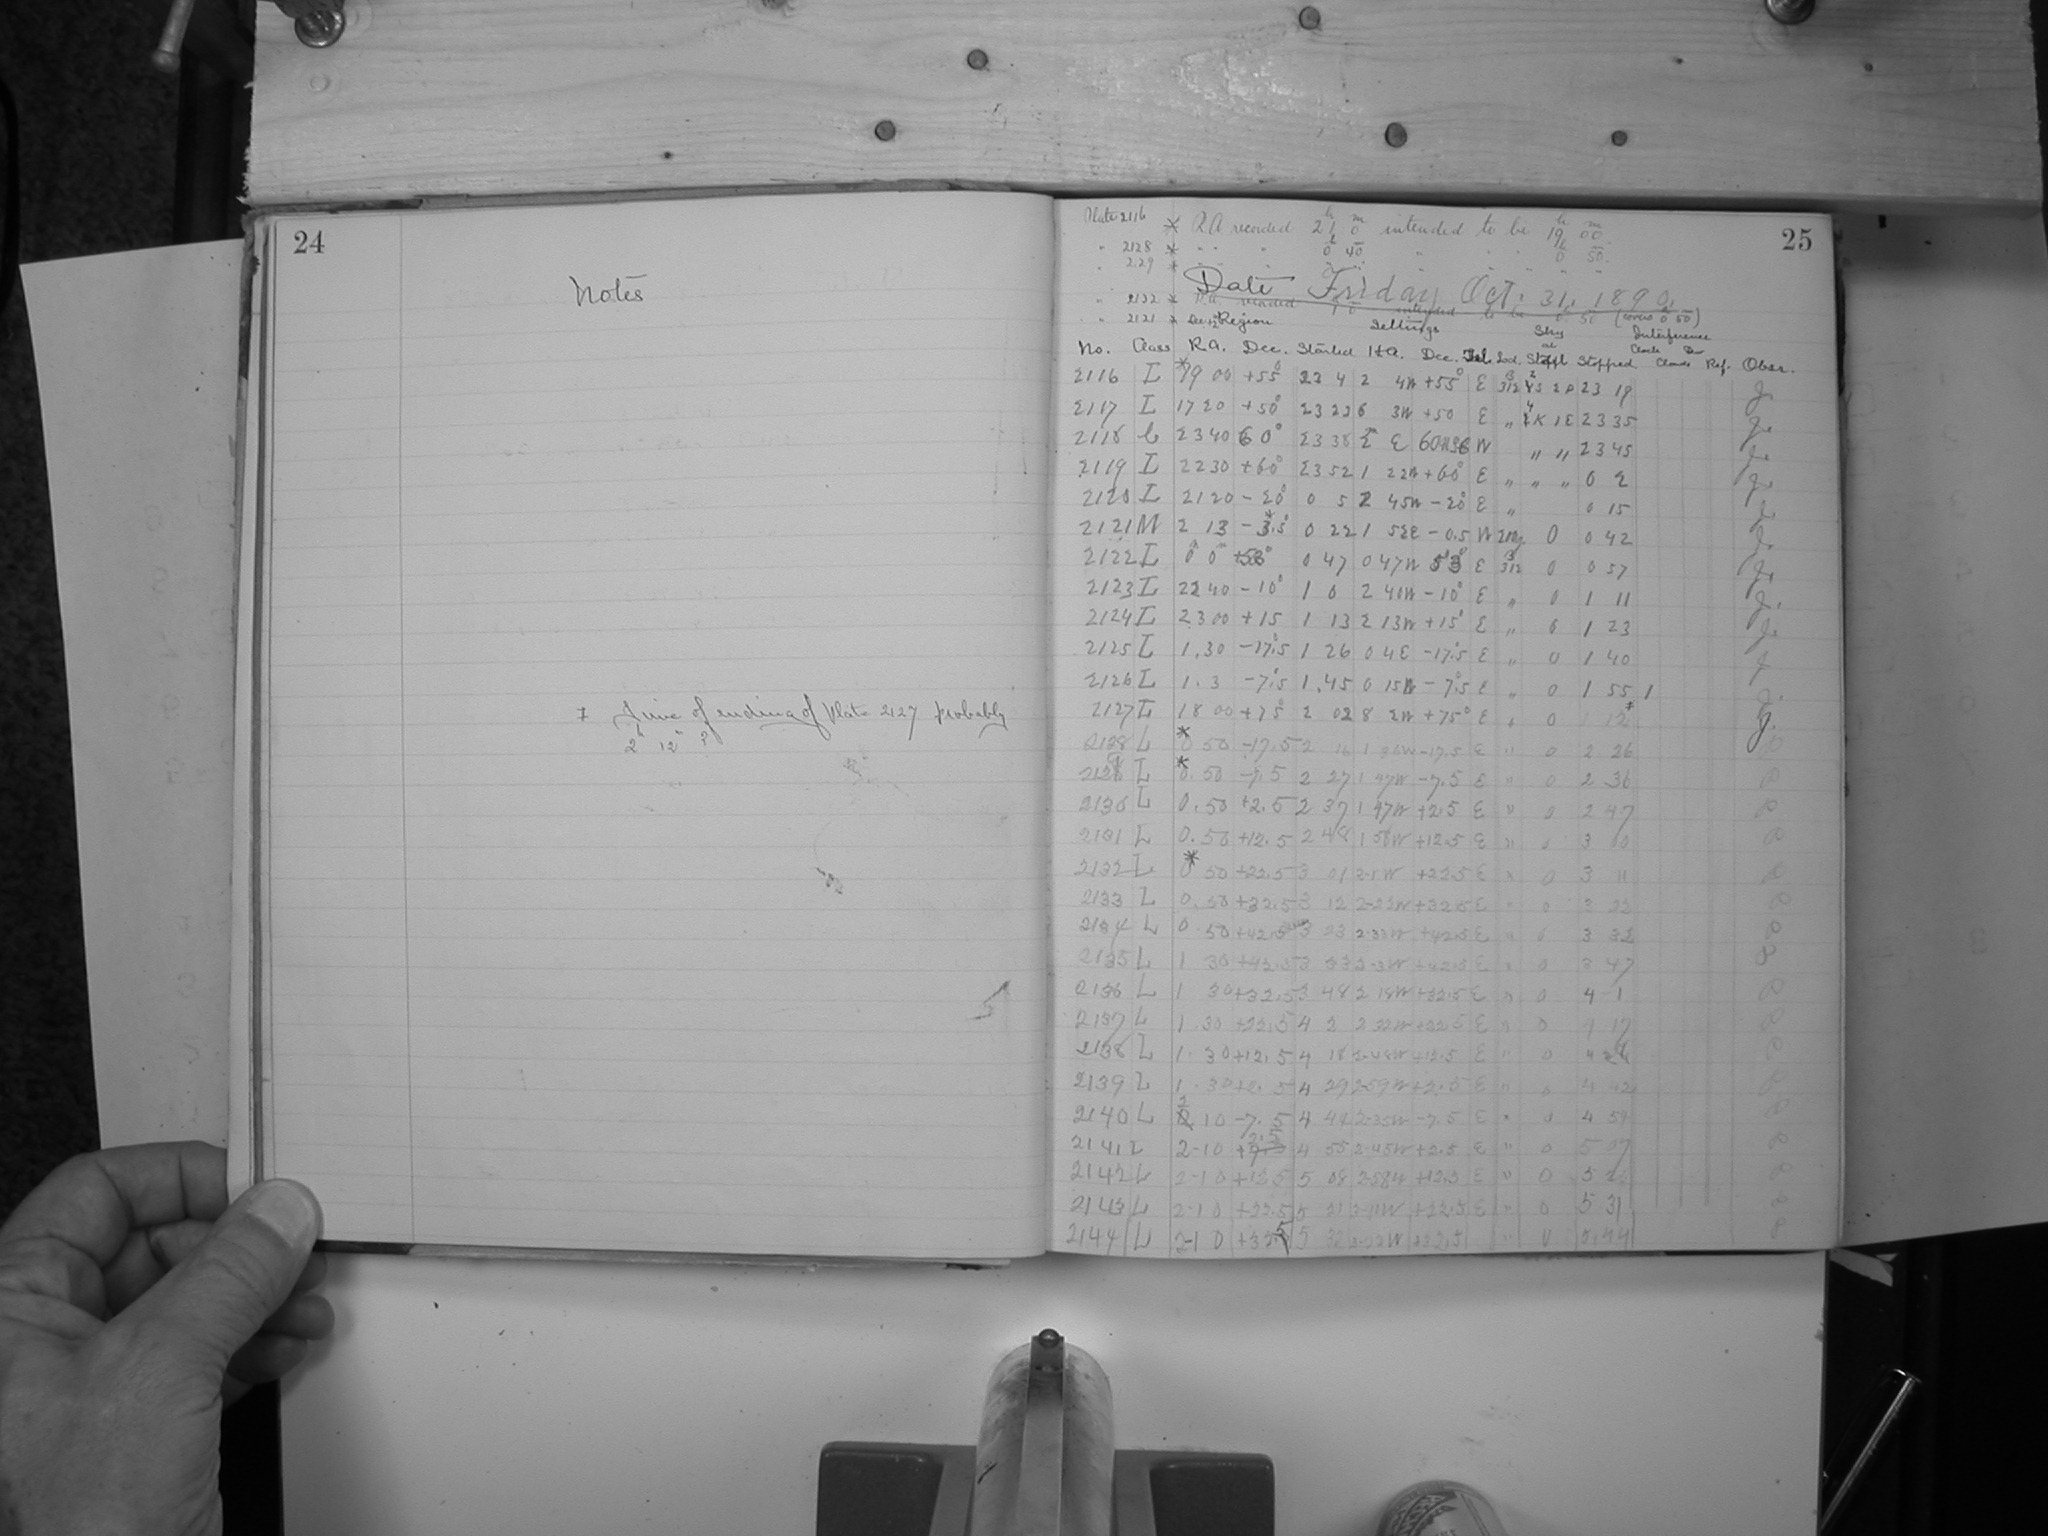 24
Notes
* Time of ending of Plate 2127 probably
2h 12m ?
25
Plate 2116 * R.A. recorded 21h 0m intended to be 19h 00m.
" 2128 * " " " 0h 40m " " 0h 50m.
" 2129 *
Date Friday Oct. 31, 1890.
" 2132 * R.A. recorded 1 0 intended to be 0 50
" 2121 * Region Settings Sky Interference
No. Class R.A. Dec. Started H.A. Dec. Tel. Stopped Clock Clouds Ref. Obsr.
2116 L *19 00 +55° 23 4 2 4W +55° E 312 23 19 J.
2117 L 17 20 +50° 23 23 6 3W +50 E " 23 35 J.
2118 C 23 40 60° 23 38 E 60 W " " 23 45 J.
2119 L 22 30 +60° 23 52 1 22W +60° E " " " 0 2 J.
2120 L 21 20 -20° 0 5 2 45W -20° E " 0 15 J.
2121 M 2 13 -3.5° 0 22 1 52E -0.5 W 0 0 42 J.
2122 L 0 0 +53° 0 47 0 47W 53° E 312 0 0 57 J.
2123 L 22 40 -10° 1 0 2 41W -10° E " 0 1 11 J.
2124 L 23 00 +15 1 13 2 13W +15° E " 0 1 23 J.
2125 L 1.30 -17.5 1 26 0 4E -17.5 E " 0 1 40 J.
2126 L 1.3 -7.5 1.45 0 15W -7.5 E " 0 1 55 1 J.
2127 L 18 00 +75° 2 02 8 2W +75° E " 0 12* J.
2128 L *0 50 -17.5 2 16 1 36W -17.5 E " 0 2 26
2129 L *0.50 -7.5 2 27 1 47W -7.5 E " 0 2 36
2130 L 0.50 +2.5 2 37 1 47W +2.5 E " 0 2 47
2131 L 0.50 +12.5 2 48 1 58W +12.5 E " 0 3 00
2132 L *0 50 +22.5 3 01 2-1W +22.5 E " 0 3 11
2133 L 0.50 +32.5 3 12 2-22W +32.5 E " 0 3 22
2134 L 0.50 +42.5 3 23 2-33W +42.5 E " 0 3 32
2135 L 1 30 +42.5 3 33 2-3W +42.5 E " 0 3 47
2136 L 1 30 +32.5 3 48 2 18W +32.5 E " 0 4 1
2137 L 1.30 +22.5 4 2 2 32W +22.5 E " 0 4 17
2138 L 1.30 +12.5 4 18 2-48W +12.5 E " 0 4
2139 L 1.30 +2.5 4 29 2-59W +2.5 E " 0 4 42
2140 L 2 10 -7.5 4 44 2-35W -7.5 E " 0 4 54
2141 L 2-10 +2.5 4 55 2-45W +2.5 E " 0 5 07
2142 L 2-10 +12.5 5 08 2-58W +12.5 E " 0 5 20
2143 L 2-10 +22.5 5 21 3-11W +22.5 E " 0 5 31
2144 L 2-10 +32.5 5 32 3-22W +32.5 " 0 5.44